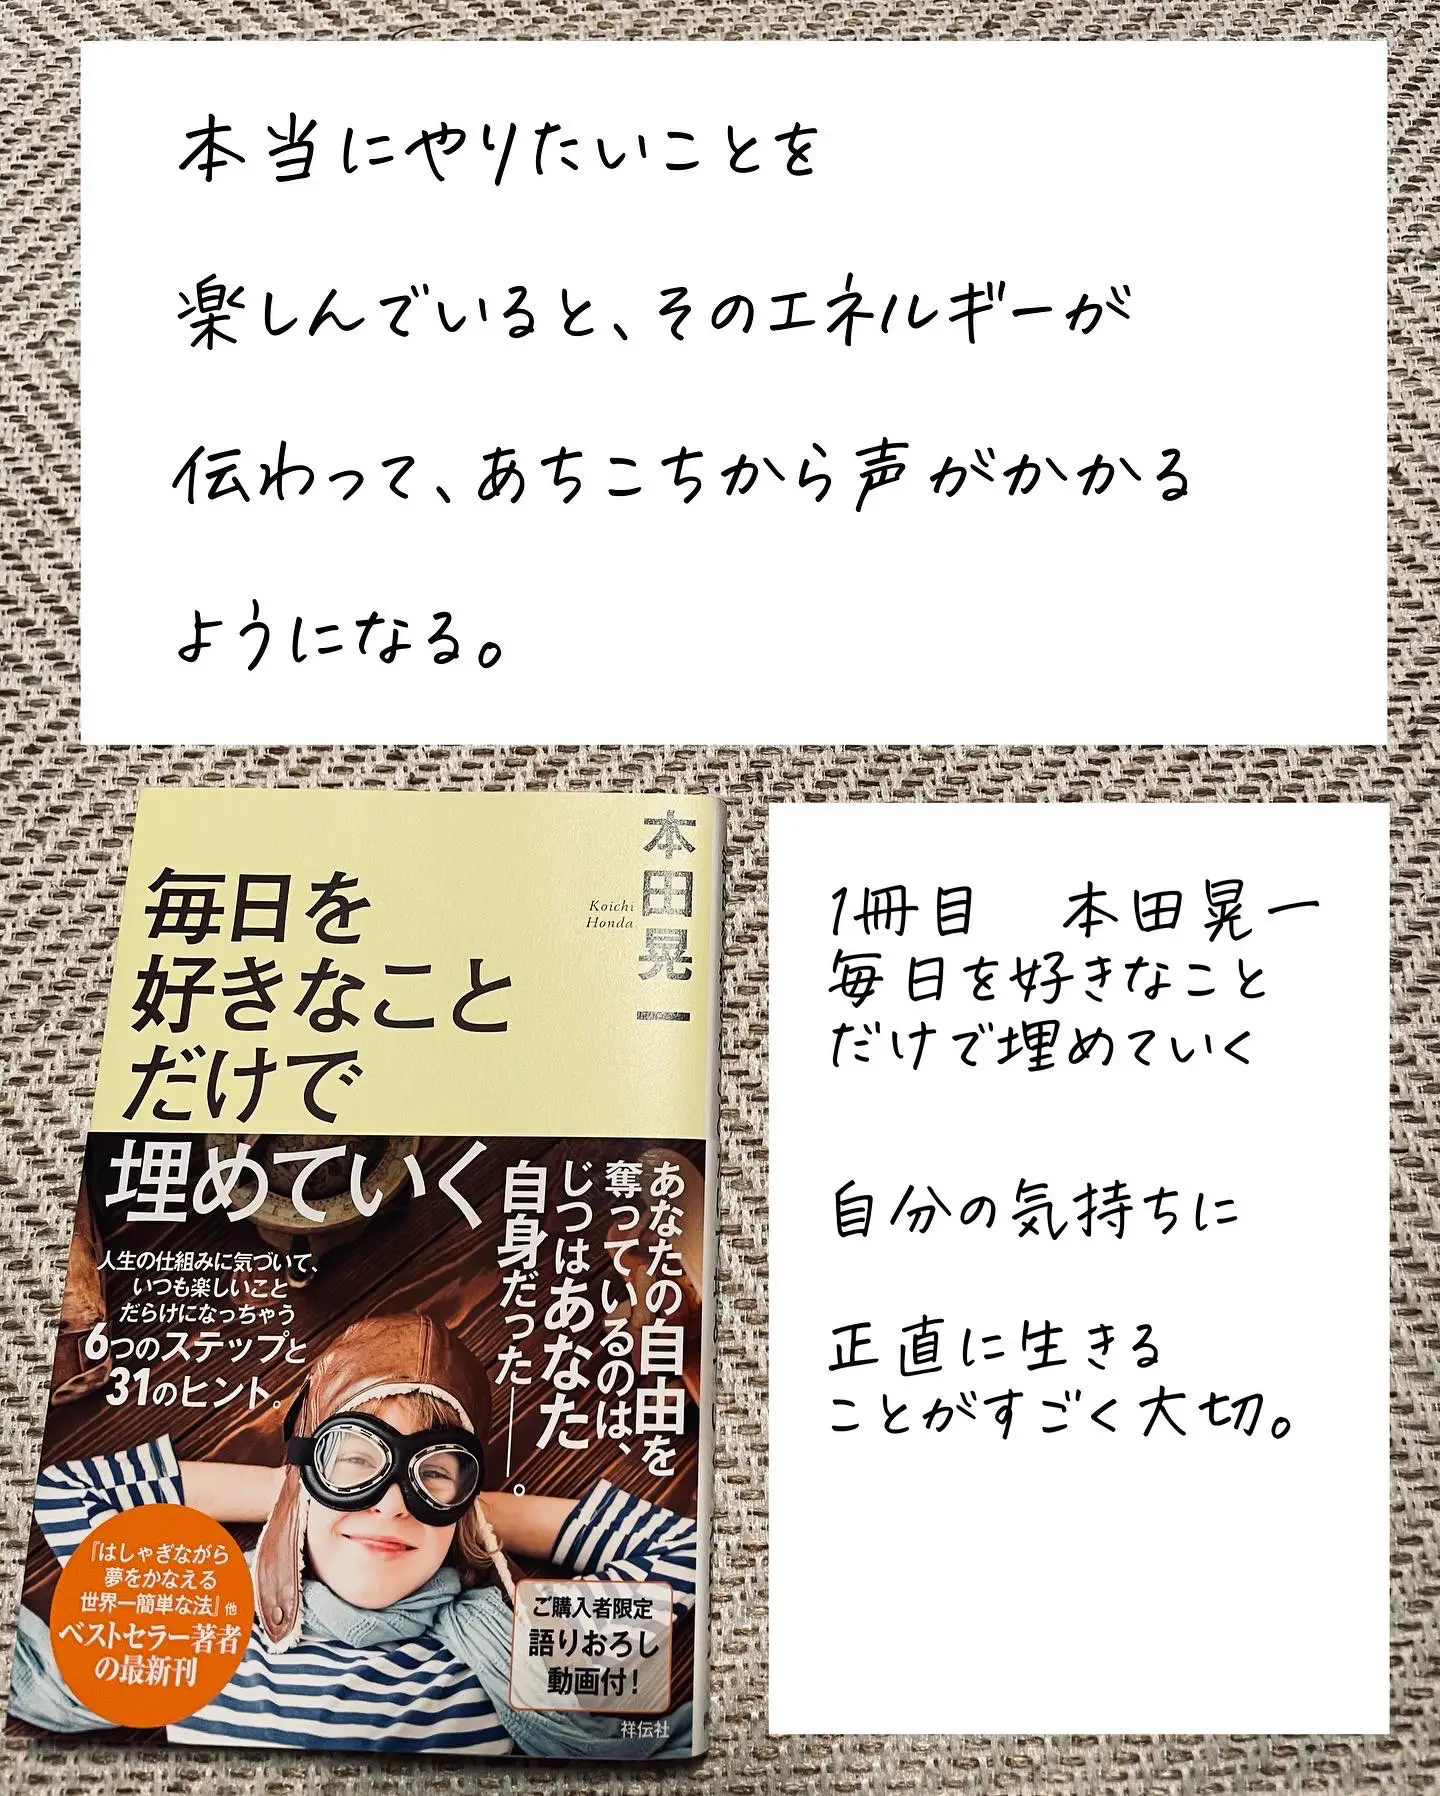 本当にやりたいことを
楽しんでいると、そのエネルギーが
伝わって、あちこちから声がかかる
ようになる。
本田晃一
Koichi
Honda
毎日を
好きなこと
だけで
埋めていく
あなたの自由を
奪っているのは、
じつはあなた
自身だった――。
人生の仕組みに気づいて、
いつも楽しいこと
だらけになっちゃう
6つのステップと
31のヒント。
『はしゃぎながら
夢をかなえる
世界一簡単な法』他
ベストセラー著者
の最新刊
ご購入者限定
語りおろし
動画付!
祥伝社
1冊目　本田晃一
毎日を好きなこと
だけで埋めていく
自分の気持ちに
正直に生きる
ことがすごく大切。